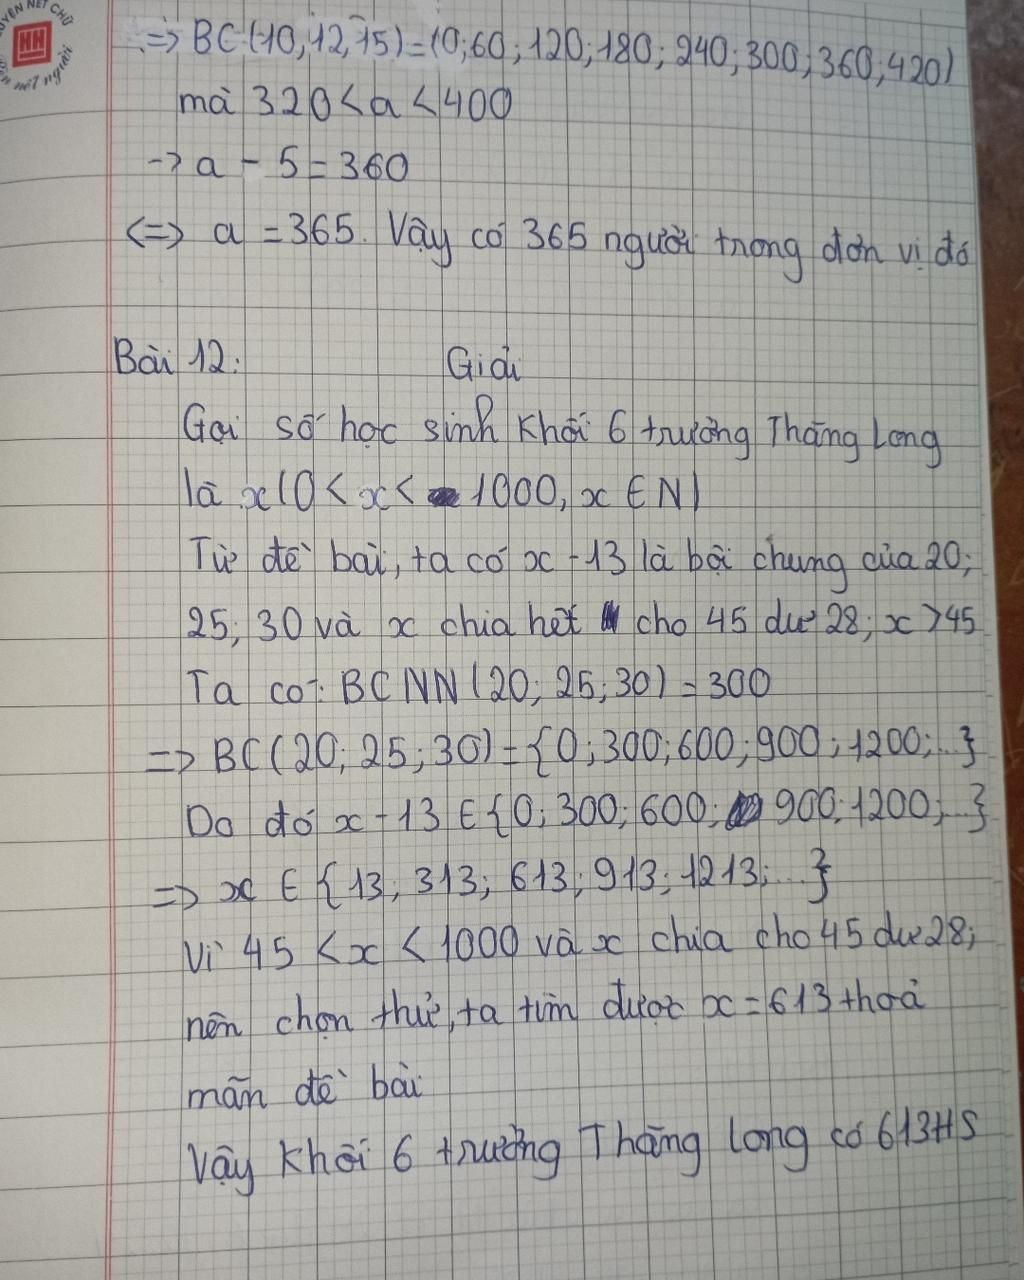 UYỆN NÉT CHỮ
nét người
=> BC(10, 12, 15)=(0; 60; 120; 180; 240; 300; 360; 420)
mà 320 < a < 400
-> a - 5 = 360
<=> a = 365. Vậy có 365 người trong đơn vị đó
Bài 12: Giải
Gọi số học sinh khối 6 trường Thăng Long
là x (0 < x < 1000, x ∈ N)
Từ đề bài, ta có x - 13 là bội chung của 20;
25; 30 và x chia hết cho 45 dư 28; x > 45
Ta có: BCNN (20; 25; 30) = 300
=> BC (20; 25; 30) = {0; 300; 600; 900; 1200; ...}
Do đó x - 13 ∈ {0; 300; 600; 900; 1200; ...}
=> x ∈ {13; 313; 613; 913; 1213; ...}
Vì 45 < x < 1000 và x chia cho 45 dư 28;
nên chọn thử, ta tìm được x = 613 thoả
mãn đề bài
Vậy khối 6 trường Thăng long có 613HS